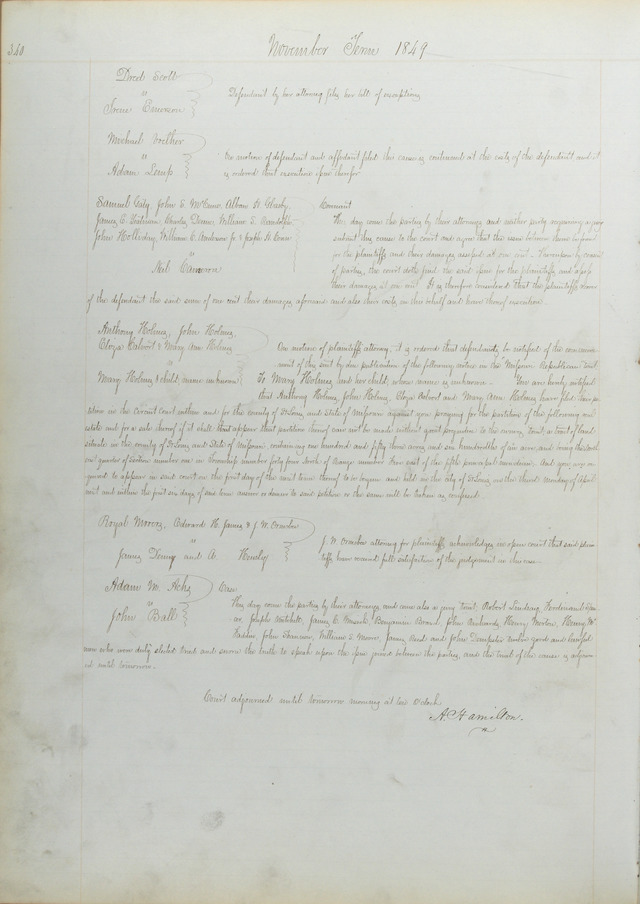 340
November Term 1849
Dred Scott
vs
Irene Emerson
Defendant by her attorney files her bill of exceptions
Michael
vs
Adam Lemp
On motion of defendant and affidavit filed this cause is continued at the costs of the defendant and it
is ordered that execution issue therefor
Samuel Gaty, John S. McCune, Alban H. Glasby,
James C. Charles Dean, William S. Randolph
John Holliday, William C. Anderson Jr & Joseph H. Conn
vs
Neil Cameron
Covenant
This day come the parties by their attorneys and neither party requiring a jury
submit this cause to the court and agree that the issue between them be found
for the plaintiffs and their damages assessed at one cent. Whereupon by consent
of parties, the court doth find the said issue for the plaintiffs and assess
their damages at one cent. It is therefore considered that the plaintiffs recover
of the defendant the said sum of one cent their damages aforesaid and also their costs in this behalf and have thereof execution.
Anthony Holmes, John Holmes,
Eloiza Calvert & Mary Ann Holmes
vs
Mary Holmes & child, name unknown
On motion of plaintiffs attorney, it is ordered that defendants be notified of the commence-
ment of this suit by due publication of the following notice in the Missouri Republican
To Mary Holmes and her child, whose name is unknown. You are hereby notified
that Anthony Holmes, John Holmes, Eloiza Calvert and Mary Ann Holmes have filed their pe-
tition in the Circuit Court within and for the county of St Louis and State of Missouri against you praying for the partition of the following real
estate and for a sale thereof if it shall thus appear that partition thereof can not be made without great prejudice to the owners, towit, a tract of land
situate in the county of St Louis and State of Missouri containing one hundred and fifty three acres and six hundredths of an acre, and being the south
east quarter of section number one in Township number forty four North of Range number four east of the fifth principal meridian. And you are re-
quired to appear in said court on the first day of the next term thereof to be begun and held in the city of St Louis on the third Monday of April
next and within the first six days of said term answer or demur to said petition or the same will be taken as confessed
Royal Edward H. James & J. W.
vs
James Denny and A. Hensly
J. W. attorney for plaintiffs acknowledges in open court that said plain-
tiffs have received full satisfaction of the judgment in this case
Adam M.
vs
John Ball
Case
This day come the parties by their attorneys, and came also a jury towit, Robert Lindsay, Ferdinand
Joseph Mitchell, James C. Benjamin Brown, John Richards, Henry Norton, Henry
John William S. Moore, James and John Dempster twelve good and lawful
men who were duly elected tried and sworn the truth to speak upon the issue joined between the parties, and the trial of the cause is adjourn
ed until tomorrow.
Court adjourned until tomorrow morning at ten O'clock
A. Hamilton.